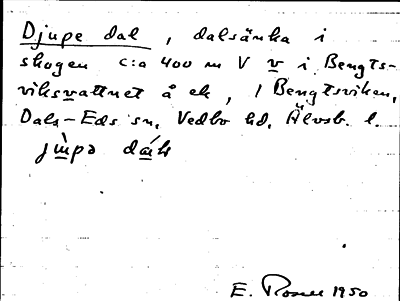 Djupe dal, dalsänka i
skogen c:a 400 m V v i Bengts-
viksvattnet å ek, / Bengtsviken,
Dals-Eds sn, Vedbo hd, Älvsb. l.
E. 1950